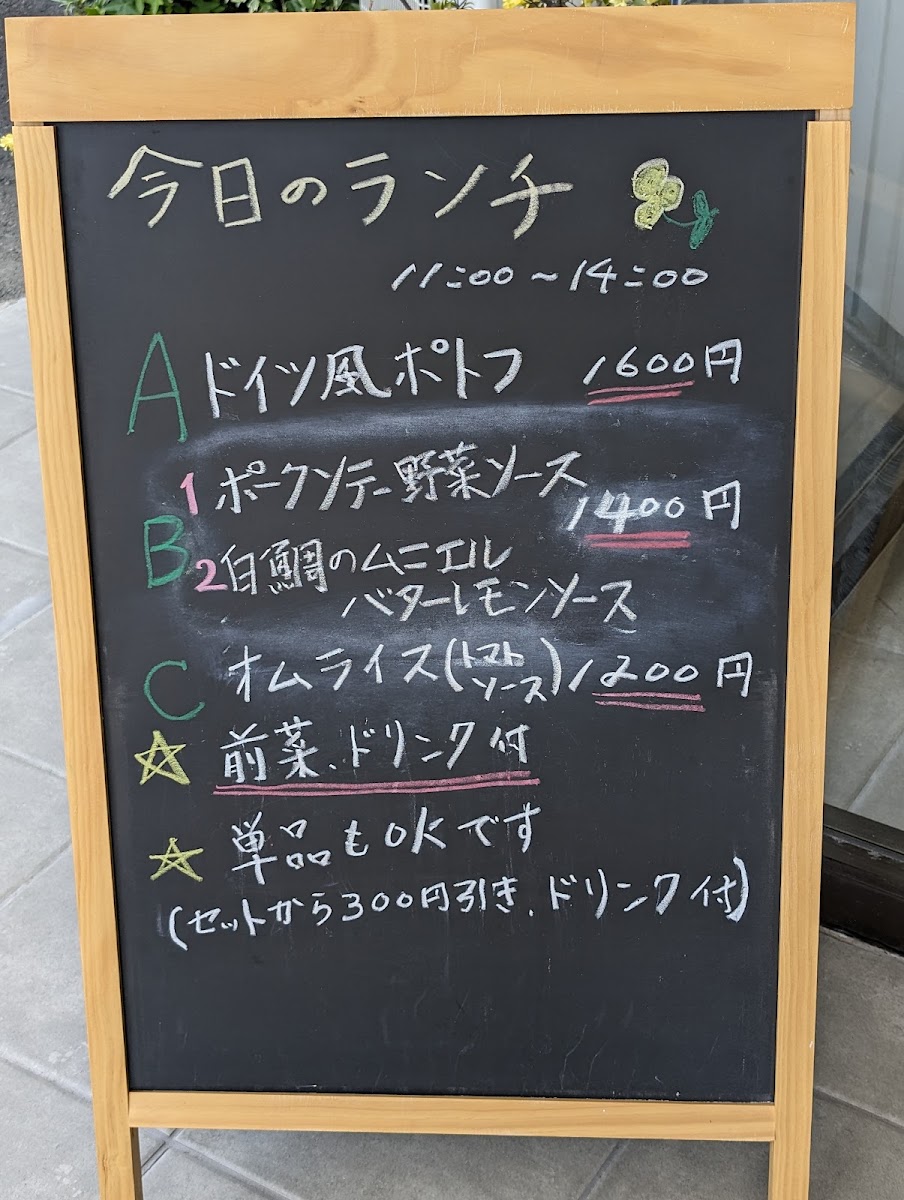 今日のランチ
11:00~14:00
A ドイツ風ポトフ 1600円
1 ポークソテー野菜ソース
B 1400円
2 白鯛のムニエル
バターレモンソース
C オムライス(トマトソース) 1200円
☆ 前菜、ドリンク付
☆ 単品もOKです
(セットから300円引き、ドリンク付)